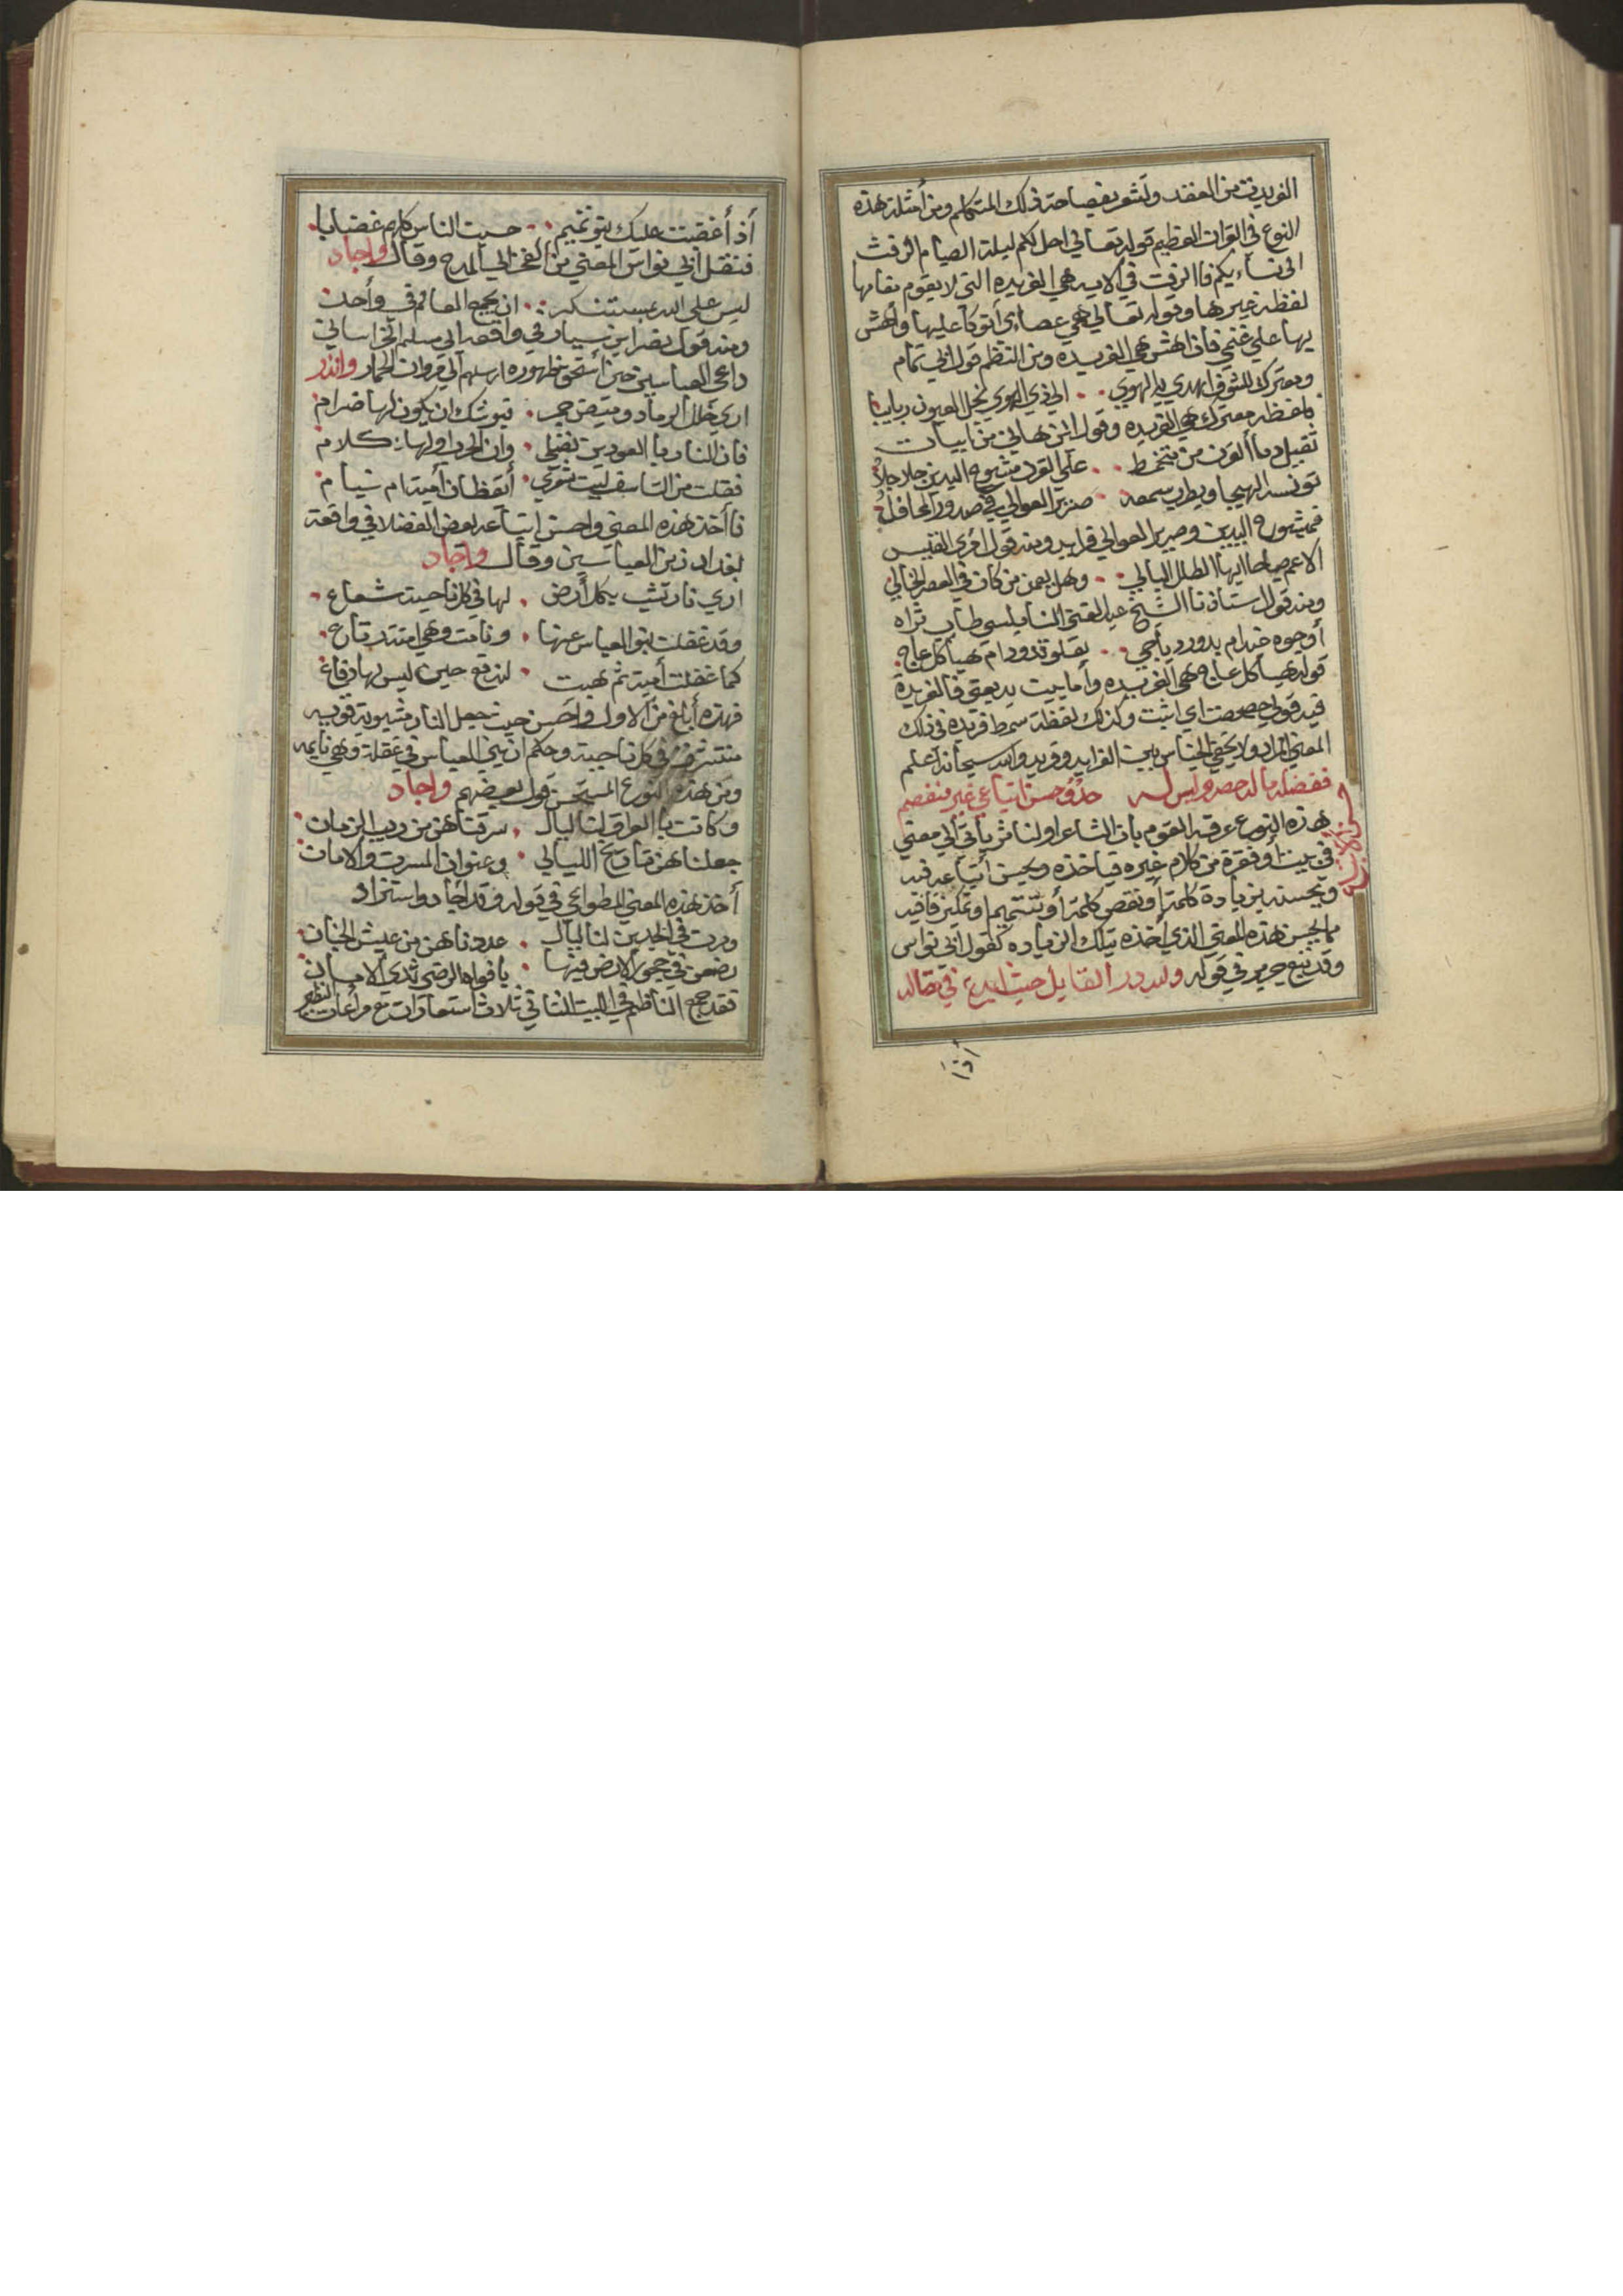 الفريدة من العقد وتشعر بفصاحة ذلك المتكلم ومن أمثلة هذه
النوع في القران العظيم قوله تعالى احل لكم ليلة الصيام الرفث
الى نساءيكم فا الرفث في الايه هي الفريده التي لا يقوم مقامها
لفظه غيرها وقوله تعالي هي عصاي أتوكا عليها وأهش
بها علي غنمي فان اهش هي الفريده ومن النظم قول ابي تمام
ومعترك للشوق اهدي به الهوي الي ذي الهوي نجل العيون رباربا
فلفظه معترك هي الفريده وقول ابن هاني من ابيات
علي القود مشبوح اليدين حلاحلاً
تونسه الهيجا ويطرب سمعه صرير العوالي في صدور المحافل
فمشبوح اليدين وصرير العوالي فرايد ومنه قول امرى القيس
الاعم صباحا ايها الطلل البالي وهل يعمن من كان في العصر الخالي
ومنه قول استاذنا الشيخ عبد الغني النابلسي طاب ثراه
أوجوه خيدام بدور دياجي بقلوتدودام هياكل عاج
قوله هياكل عاج هي الفريده وأما بيت بديعتي فا الفريدة
فيه قولي حصحصت اي اثبت وكذلك لفظة سمط فريده في ذلك
المعني المراد ولا يخفي الجناس بين الفرايد وفريد والله سبحانه أعلم
ففضله ما له حصر وليس له حذو حسن اتباعي غير منفصم
حسن الاتباع
هذه النوع عرفه القوم بان الشاعر او لناثر يأتي الي معني
في بيت أو فقرة من كلام غيره فيا خذه ويحسن أتباعه فيه
ويحسنه بزيادة كلمة أو نقص كلمة أو تتميم او تمكين قافيه
مما يحسن هذه المعني الذي أخذه بتلك الزياده كقول ابي نواس
وقد تبع جرير في قوله ولله در القايل حيث ابدع في مقاله
اذا
أذ أغضبت عليك بنو تميم حسبت الناس كلهم غضابا
فنقل ابي نواس المعني من الفخر الي المدح وقال واجاد
ليس علي الله بمستنكر ان يجمع العالم في واحد
ومنه قول نصر ابن سيار في واقعه ابي مسلم الخراساني
داعي العباسين حين أستحق ظهوره ارسلهم الي مروان الحمار وانذر
اري خلل الرماد وميض جمر فيوشك ان يكون لها ضرام
فان النار بالعودين تفتلي وان الحرب اولها كلام
فقلت من التاسف ليت شعري أيقظان أمية ام نيام
فا أخذ هذه المعني واحسن اتباعه بعض الفضلا في واقعة
بغداد زمن العباسين وقال واجاد
اري نار تشب بكل أرض لها في كل ناحية شعاع
وقد غفلت بنو العباس عنها ونامت وهي امنة رتاع
كما غفلت أمية ثم هبت لتدفع حين ليس لها دفاع
فهذه أبلغ من الاول واحسن حيث جعل النار مشبوبة قويه
منتشره في كل ناحية وحكم ان بني العباس في غفلة وهي نايمه
ومن هذه النوع المستحسن قول بعضهم واجاد
وكانت با العراق لنا ليال سرقناهن من ريب الزمان
جعلناهن تاريخ الليالي وعنوان المسرت والامان
أخذ هذه المعني المطواعي في قوله وقد اجاد واستزاد
ومرت في الجديرن لنا ليال عددناهن من عيش الجنان
رضعن في حجور الارض فيها بافواه الرضي ثدي الامان
فقد جمع الناظم في البيت الثاني ثلاث استعارات مع مراعات النظير